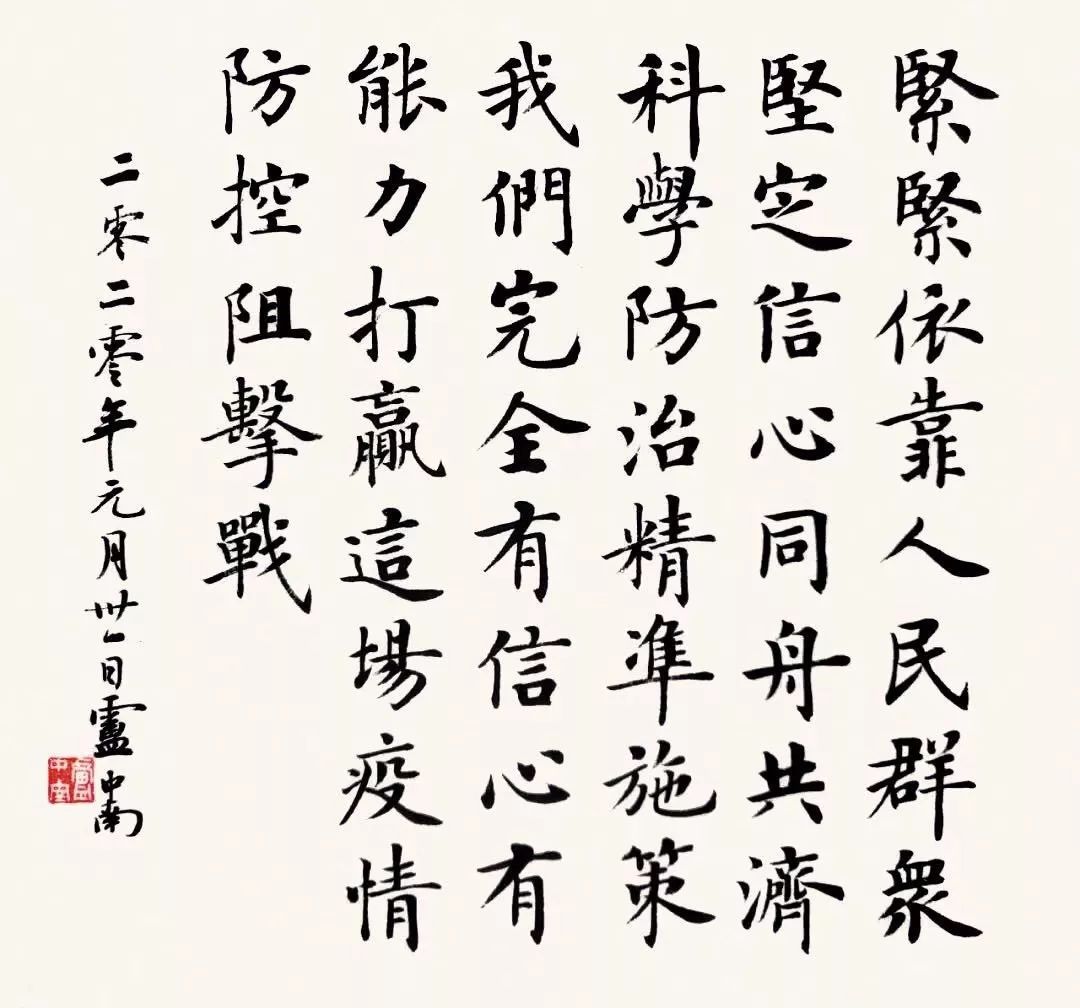 緊緊依靠人民群衆
堅定信心同舟共濟
科學防治精準施策
我們完全有信心有
能力打贏這場疫情
防控阻擊戰
二零二零年元月卅一日盧中南
盧中南